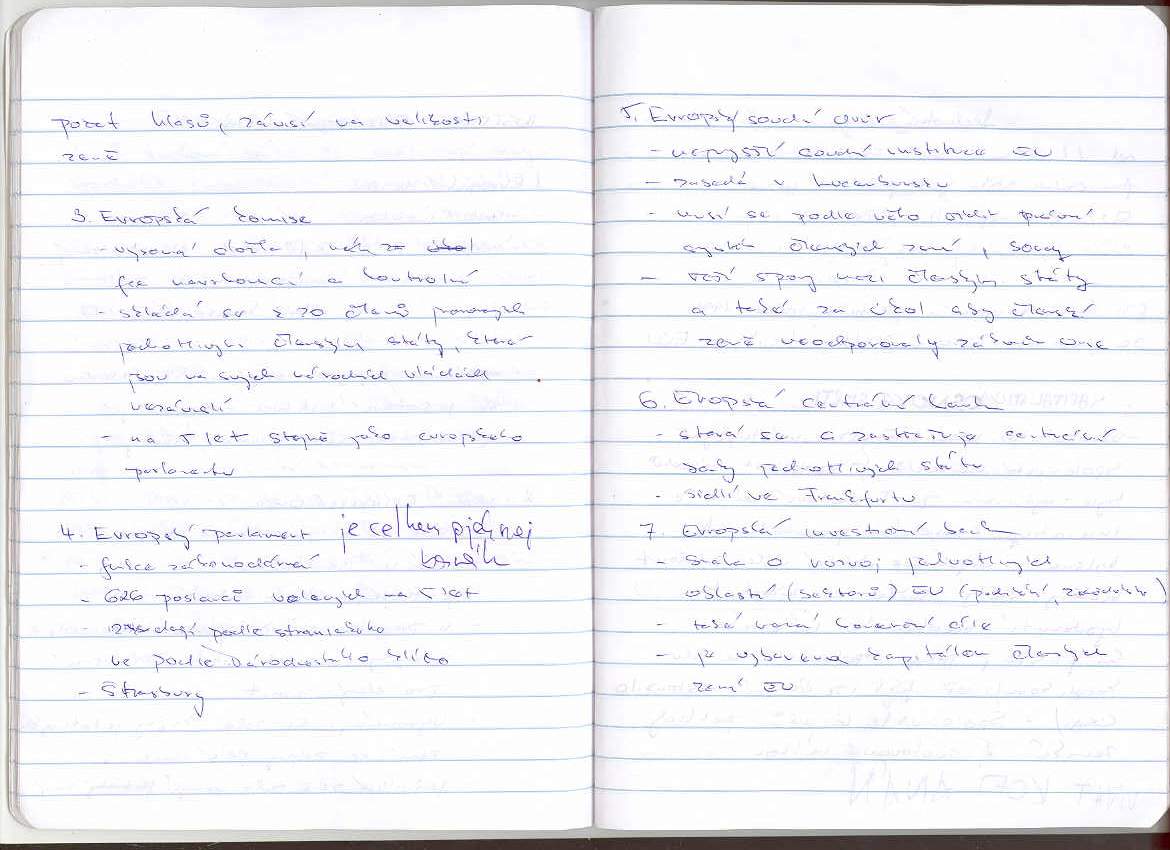 počet hlasů, závisí na velikosti
země
3. Evropská komise
- výkonná složka, má
fce navrhovací a kontrolní
- skládá se z 20 členů
jednotlivými členskými státy, které
jsou na svých národních vládách
nezávislí
- na 5 let stejně jako evropského
parlamentu
4. Evropský parlament je celkem pjěknej
- funkce zákonodárná
- 626 poslanců volených na 5 let
podle stranického
ne podle národnostního klíče
- Štrasburg
5. Evropský soudní dvůr
- nejvyšší soudní instituce EU
- zasedá v Lucembursku
- musí se podle něho řídit právní
systém členských zemí, soudy
- řeší spory mezi členskými státy
a také za úkol aby členské
země neodporovaly zákonům unie
6. Evropská centrální bank
- stará se a zastřešuje centrální
banky jednotlivých států
- sídlí ve Frankfurtu
7. Evropská investiční bank
- snaha o rozvoj jednotlivých
oblastí (sektorů) EU (podnikání, zemědělství)
- také
- je vybavena kapitálem členských
zemí EU